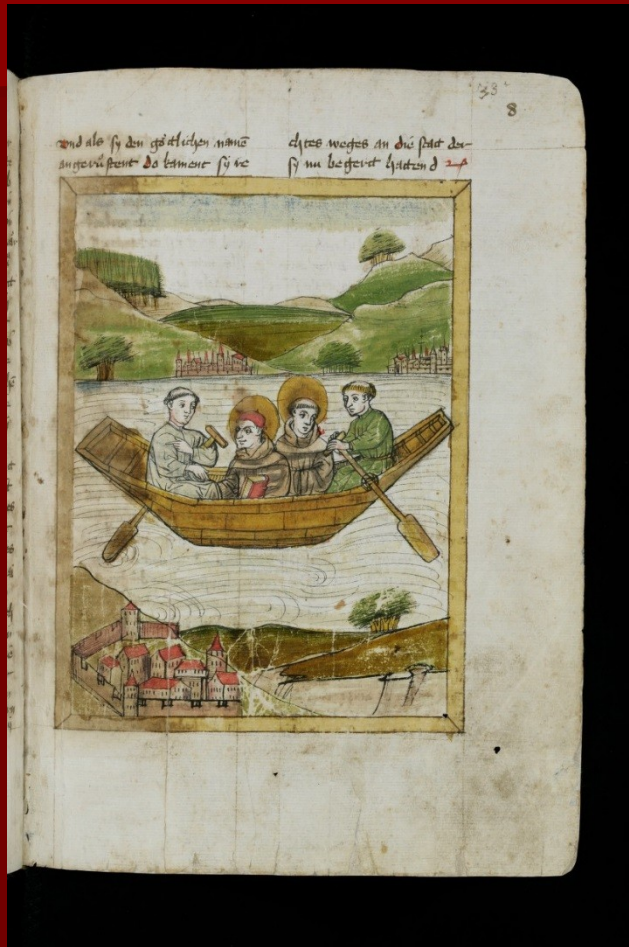 33
8
vnd als sy den götlichen namē
angerůftent do kament sy re
chtes weges an die stat der
sy nu begert hattend